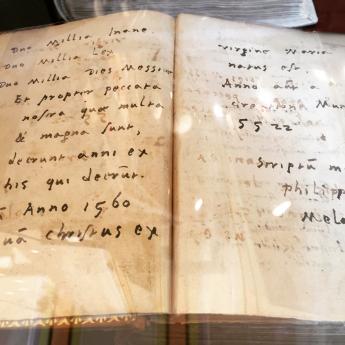 Duo Millia Inane.
Duo Millia Lex
Duo Millia Dies Messiae
Et propter peccata
nostra quae multa
& magna sunt,
decrunt anni ex
his qui decrūt.
Anno 1560
christus ex
virgine Maria
natus est.
Anno aūt a
Mun
5522
Scriptū m
philipp
Mela